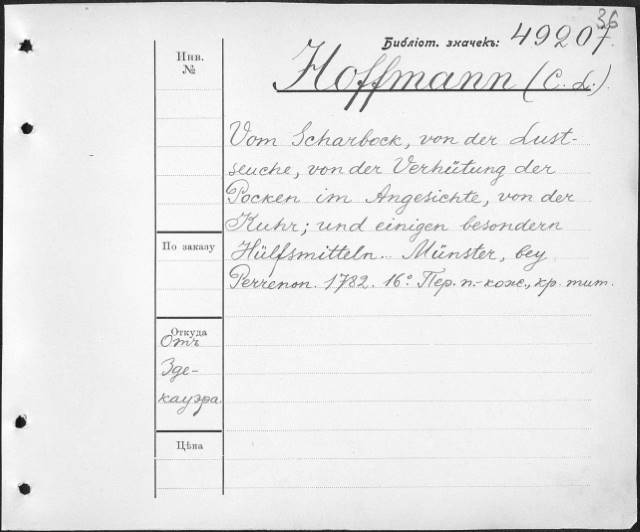 36
Библіот. значекъ: 49207.
Инв.
№
Hoffmann (C. L.)
Vom Scharbock, von der Lust-
seuche, von der Verhütung der
Pocken im Angesichte, von der
Ruhr; und einigen besondern
Hülfsmitteln. Münster, bey
Perrenon. 1782. 16° Пер. п.-кож., кр. тит.
По заказу
Откуда
Отъ
Зде-
кауэра.
Цѣна